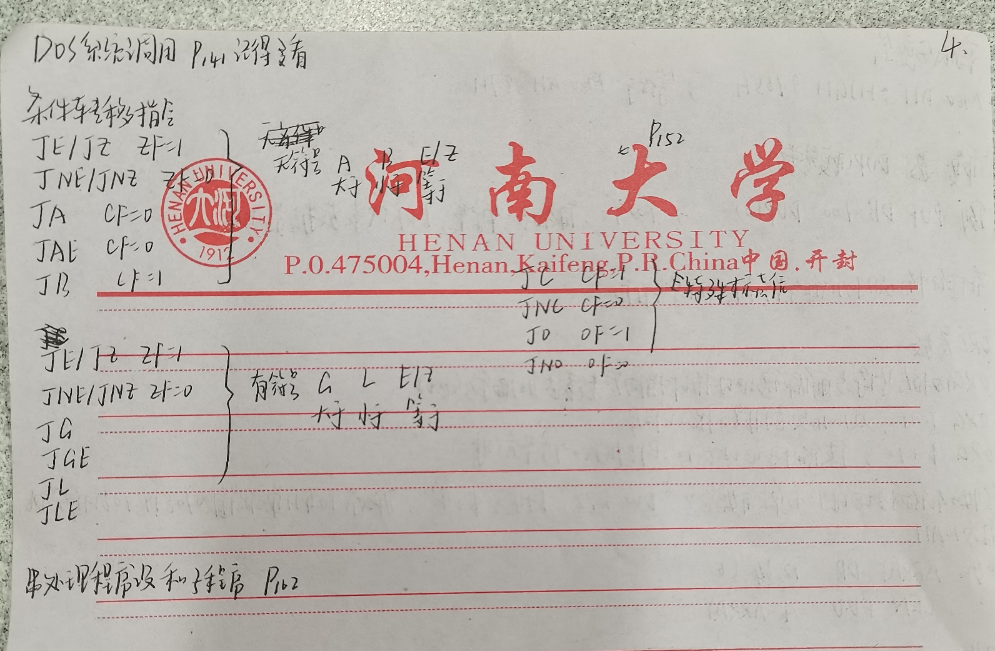 DOS系统调用 P141 记得看
4.
条件转移指令
JE/JZ ZF=1
JNE/JNZ ZF=
JA CF=0
JAE CF=0
JB CF=1
无符号 A B E/Z
大于 小于 等于
P152
河南大学
HENAN UNIVERSITY
P.O.475004,Henan,Kaifeng,P.R.China中国.开封
HENAN UNIVERSITY
1912
JC CF=1
JNC CF=0
JO OF=1
JNO OF=0
特殊标志位
JE/JZ ZF=1
JNE/JNZ ZF=0
JG
JGE
JL
JLE
有符号 G L E/Z
大于 小于 等于
串处理程序设和子程序 P162